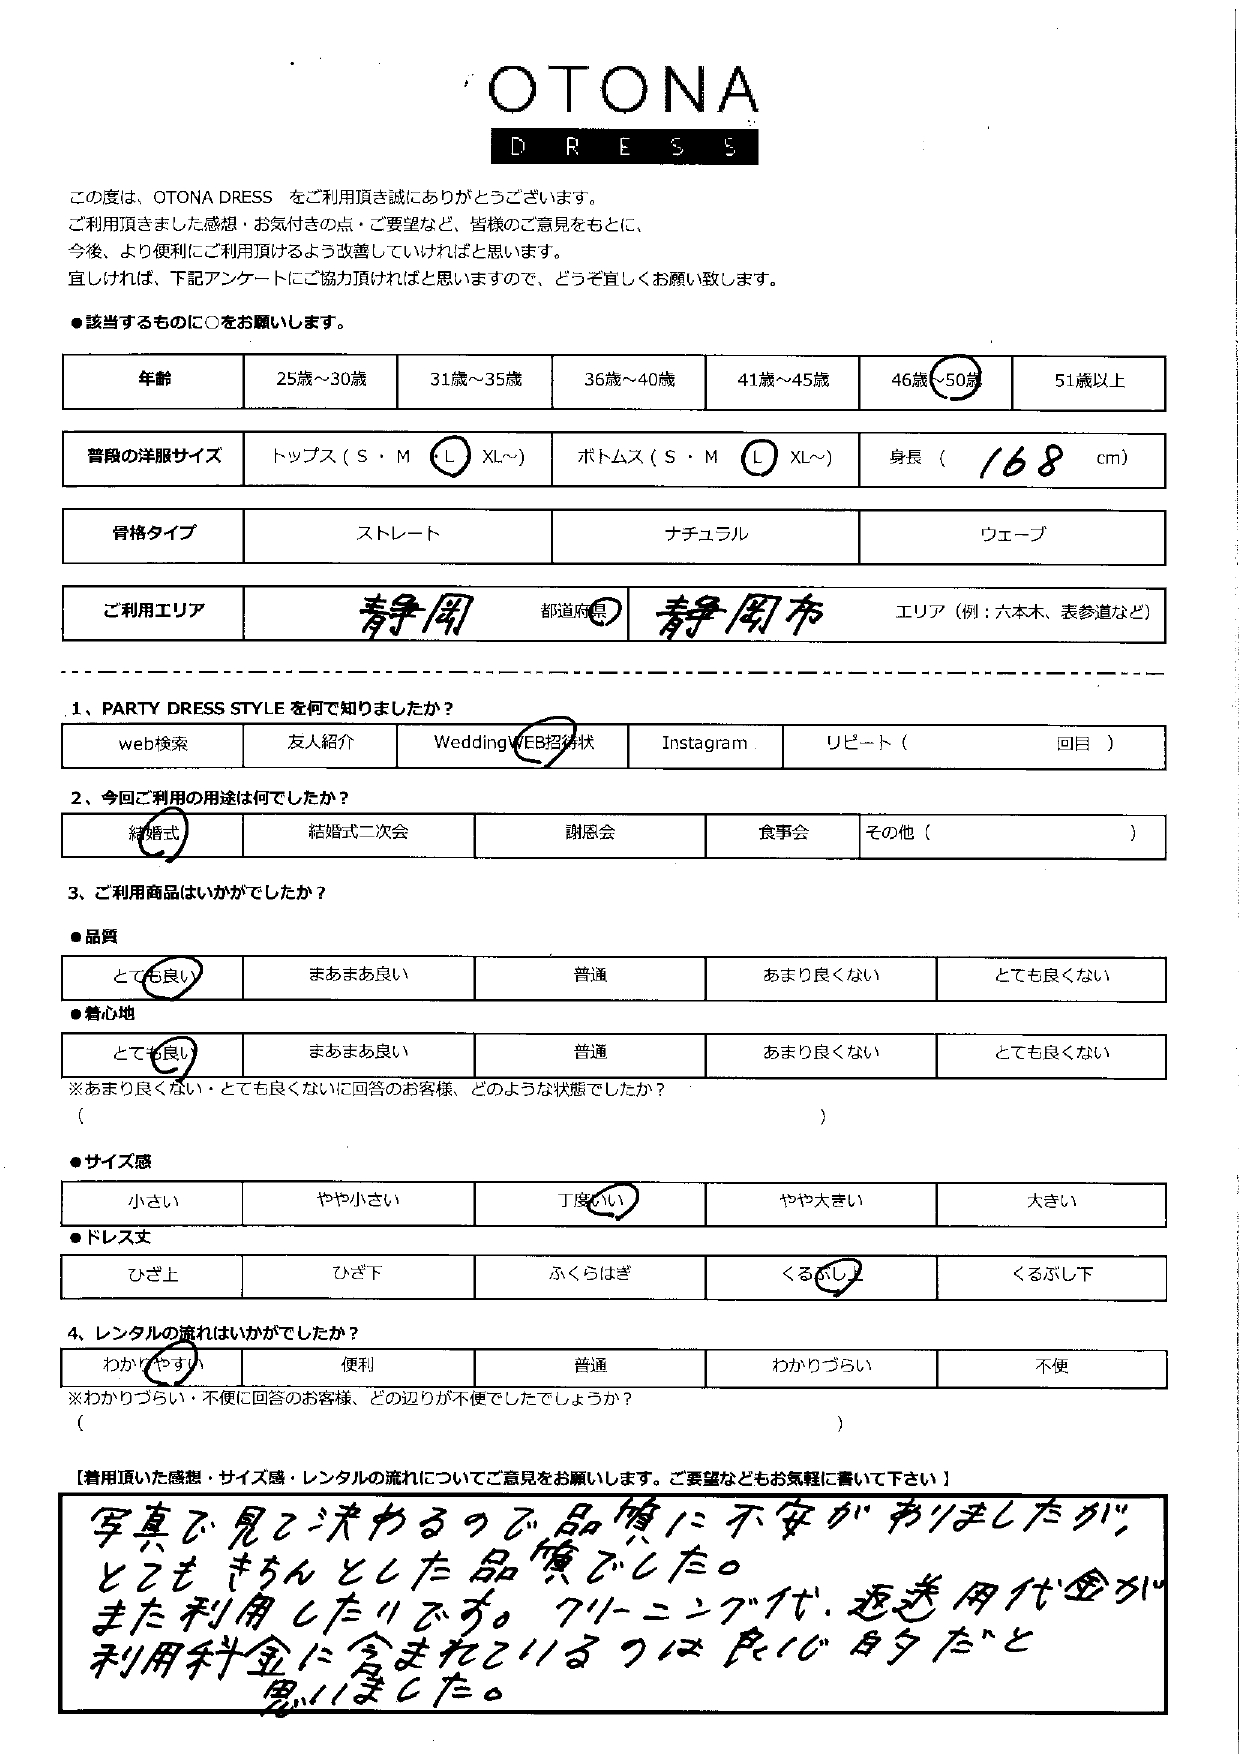 OTONA
DRESS
この度は、OTONA DRESS をご利用頂き誠にありがとうございます。
ご利用頂きました感想・お気付きの点・ご要望など、皆様のご意見をもとに、
今後、より便利にご利用頂けるよう改善していければと思います。
宜しければ、下記アンケートにご協力頂ければと思いますので、どうぞ宜しくお願い致します。
●該当するものに○をお願いします。
年齢 25歳～30歳 31歳～35歳 36歳～40歳 41歳～45歳 46歳～50歳 51歳以上
普段の洋服サイズ トップス（ S ・ M ・ L XL～） ボトムス（ S ・ M L XL～） 身長 （ 168 cm）
骨格タイプ ストレート ナチュラル ウェーブ
ご利用エリア 静岡 都道府県 静岡市 エリア（例：六本木、表参道など）
1、PARTY DRESS STYLE を何で知りましたか？
web検索 友人紹介 WeddingWEB招待状 Instagram リピート（ 回目 ）
2、今回ご利用の用途は何でしたか？
結婚式 結婚式二次会 謝恩会 食事会 その他（ ）
3、ご利用商品はいかがでしたか？
●品質
とても良い まあまあ良い 普通 あまり良くない とても良くない
●着心地
とても良い まあまあ良い 普通 あまり良くない とても良くない
※あまり良くない・とても良くないに回答のお客様、どのような状態でしたか？
（ ）
●サイズ感
小さい やや小さい 丁度いい やや大きい 大きい
●ドレス丈
ひざ上 ひざ下 ふくらはぎ くるぶし上 くるぶし下
4、レンタルの流れはいかがでしたか？
わかりやすい 便利 普通 わかりづらい 不便
※わかりづらい・不便に回答のお客様、どの辺りが不便でしたでしょうか？
（ ）
【着用頂いた感想・サイズ感・レンタルの流れについてご意見をお願いします。ご要望などもお気軽に書いて下さい 】
写真で見て決めるので品質に不安がありましたが，
とてもきちんとした品質でした。
また利用したいです。クリーニング代、返送用代金が
利用料金に含まれているのは良心的だと
思いました。